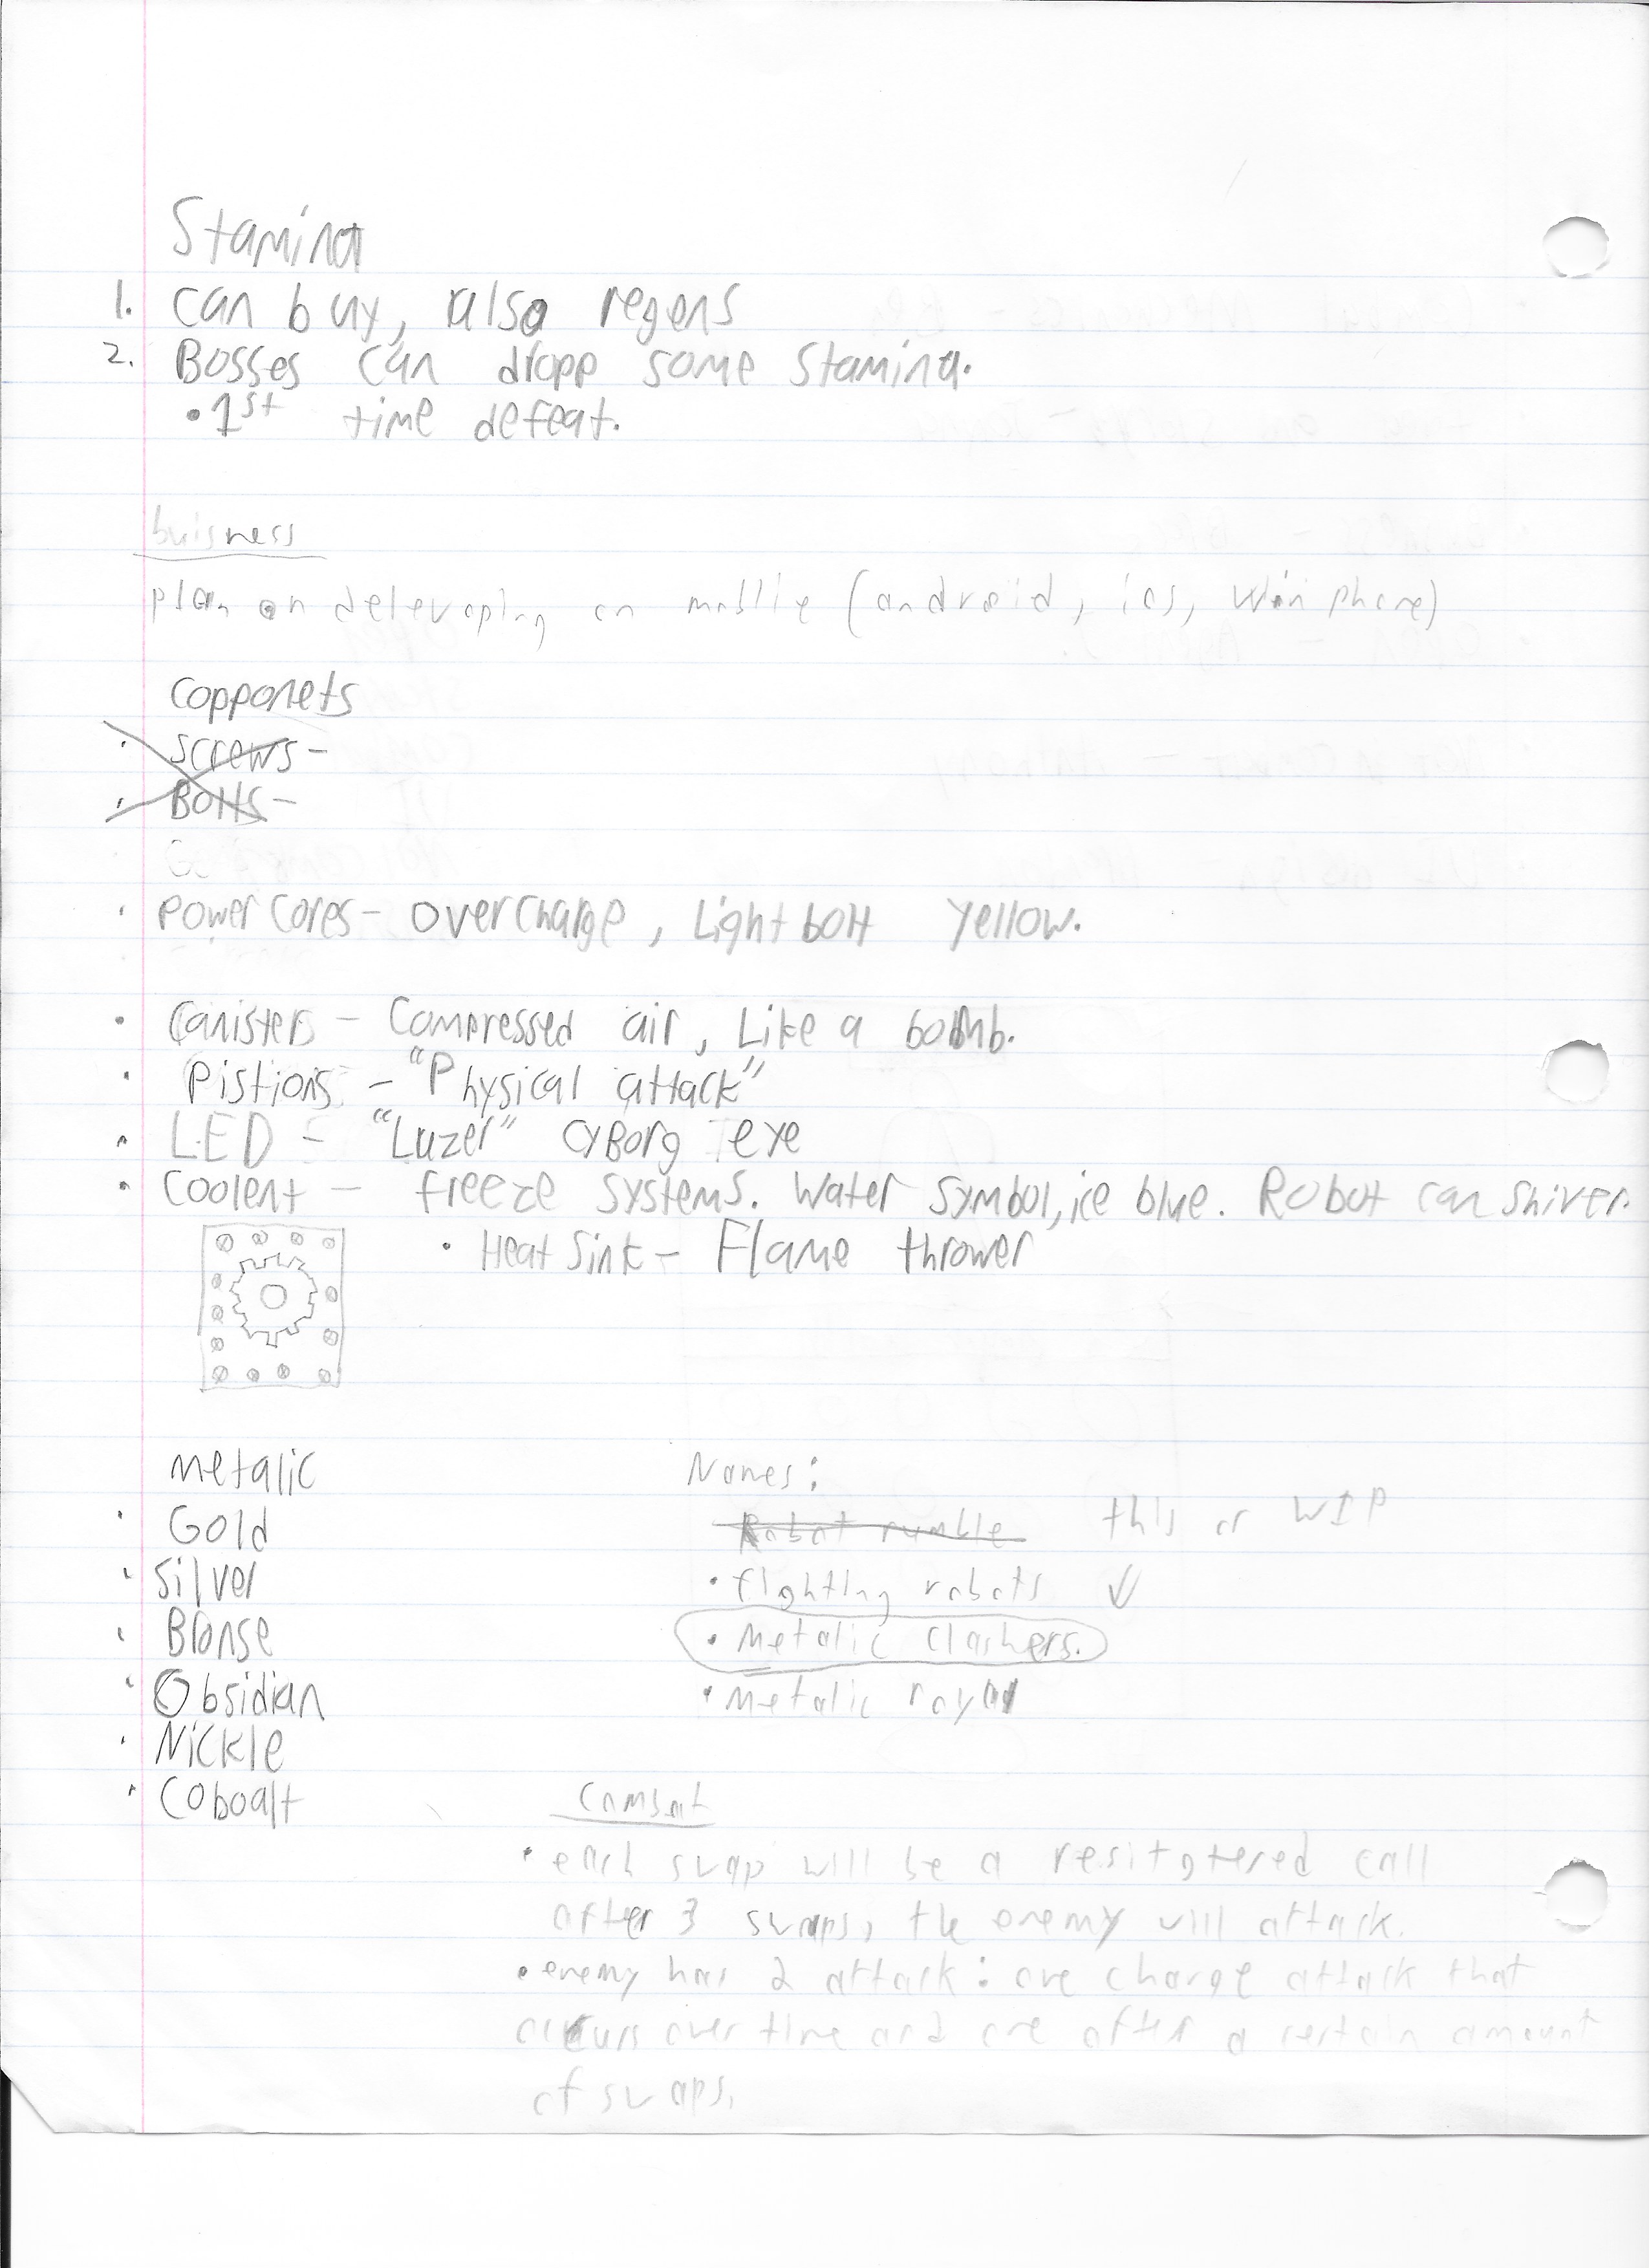 Stamina
1. can buy, also regens
2. Bosses can dropp some stamina.
• 1st time defeat.
buisness
plan on deleveoping on moblie (android, ios, Win phone)
Copponets
• screws -
• Bolts -
• Power Cores - overcharge, Light bolt yellow.
• Canisters - Compressed air, Like a bomb.
• Pistions - "Physical attack"
• LED - "Luzer" cyBorg eye
• Coolent - freeze systems. Water symbol, ice blue. Robot can shiver.
• Heat Sink - Flame thrower
metalic
• Gold
• Silver
• Bronse
• Obsidian
• Nickle
• Coboalt
Names:
Robot rumble this or WIP
• fighting robots
• Metalic clashers.
• Metalic royal
Combat
• each swap will be a resitgtered call
after 3 swaps, the enemy will attack.
• enemy has 2 attack: one charge attack that
occurs over time and one after a certain amount
of swaps.